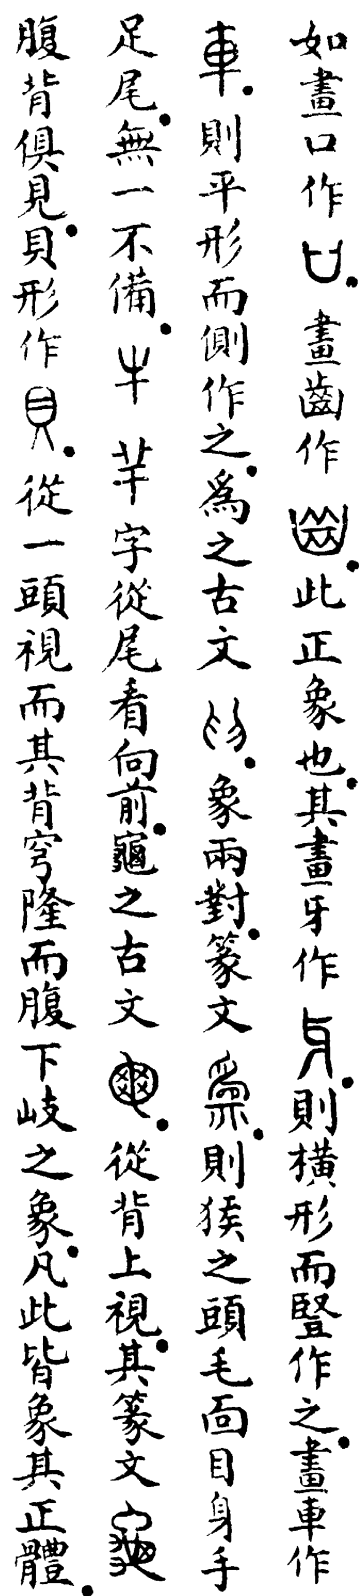 如畫口作𠙵。畫齒作𦥒。此正象也。其畫牙作⾛。則橫形而豎作之。畫車作
車。則平形而側作之。爲之古文。象兩對。篆文。則猴之頭毛面目身手
足尾。無一不備。牛 羊字從尾看向前。龜之古文。從背上視。其篆文
腹背俱見。貝形作。從一頭視而其背穹隆而腹下岐之象。凡此皆象其正體。